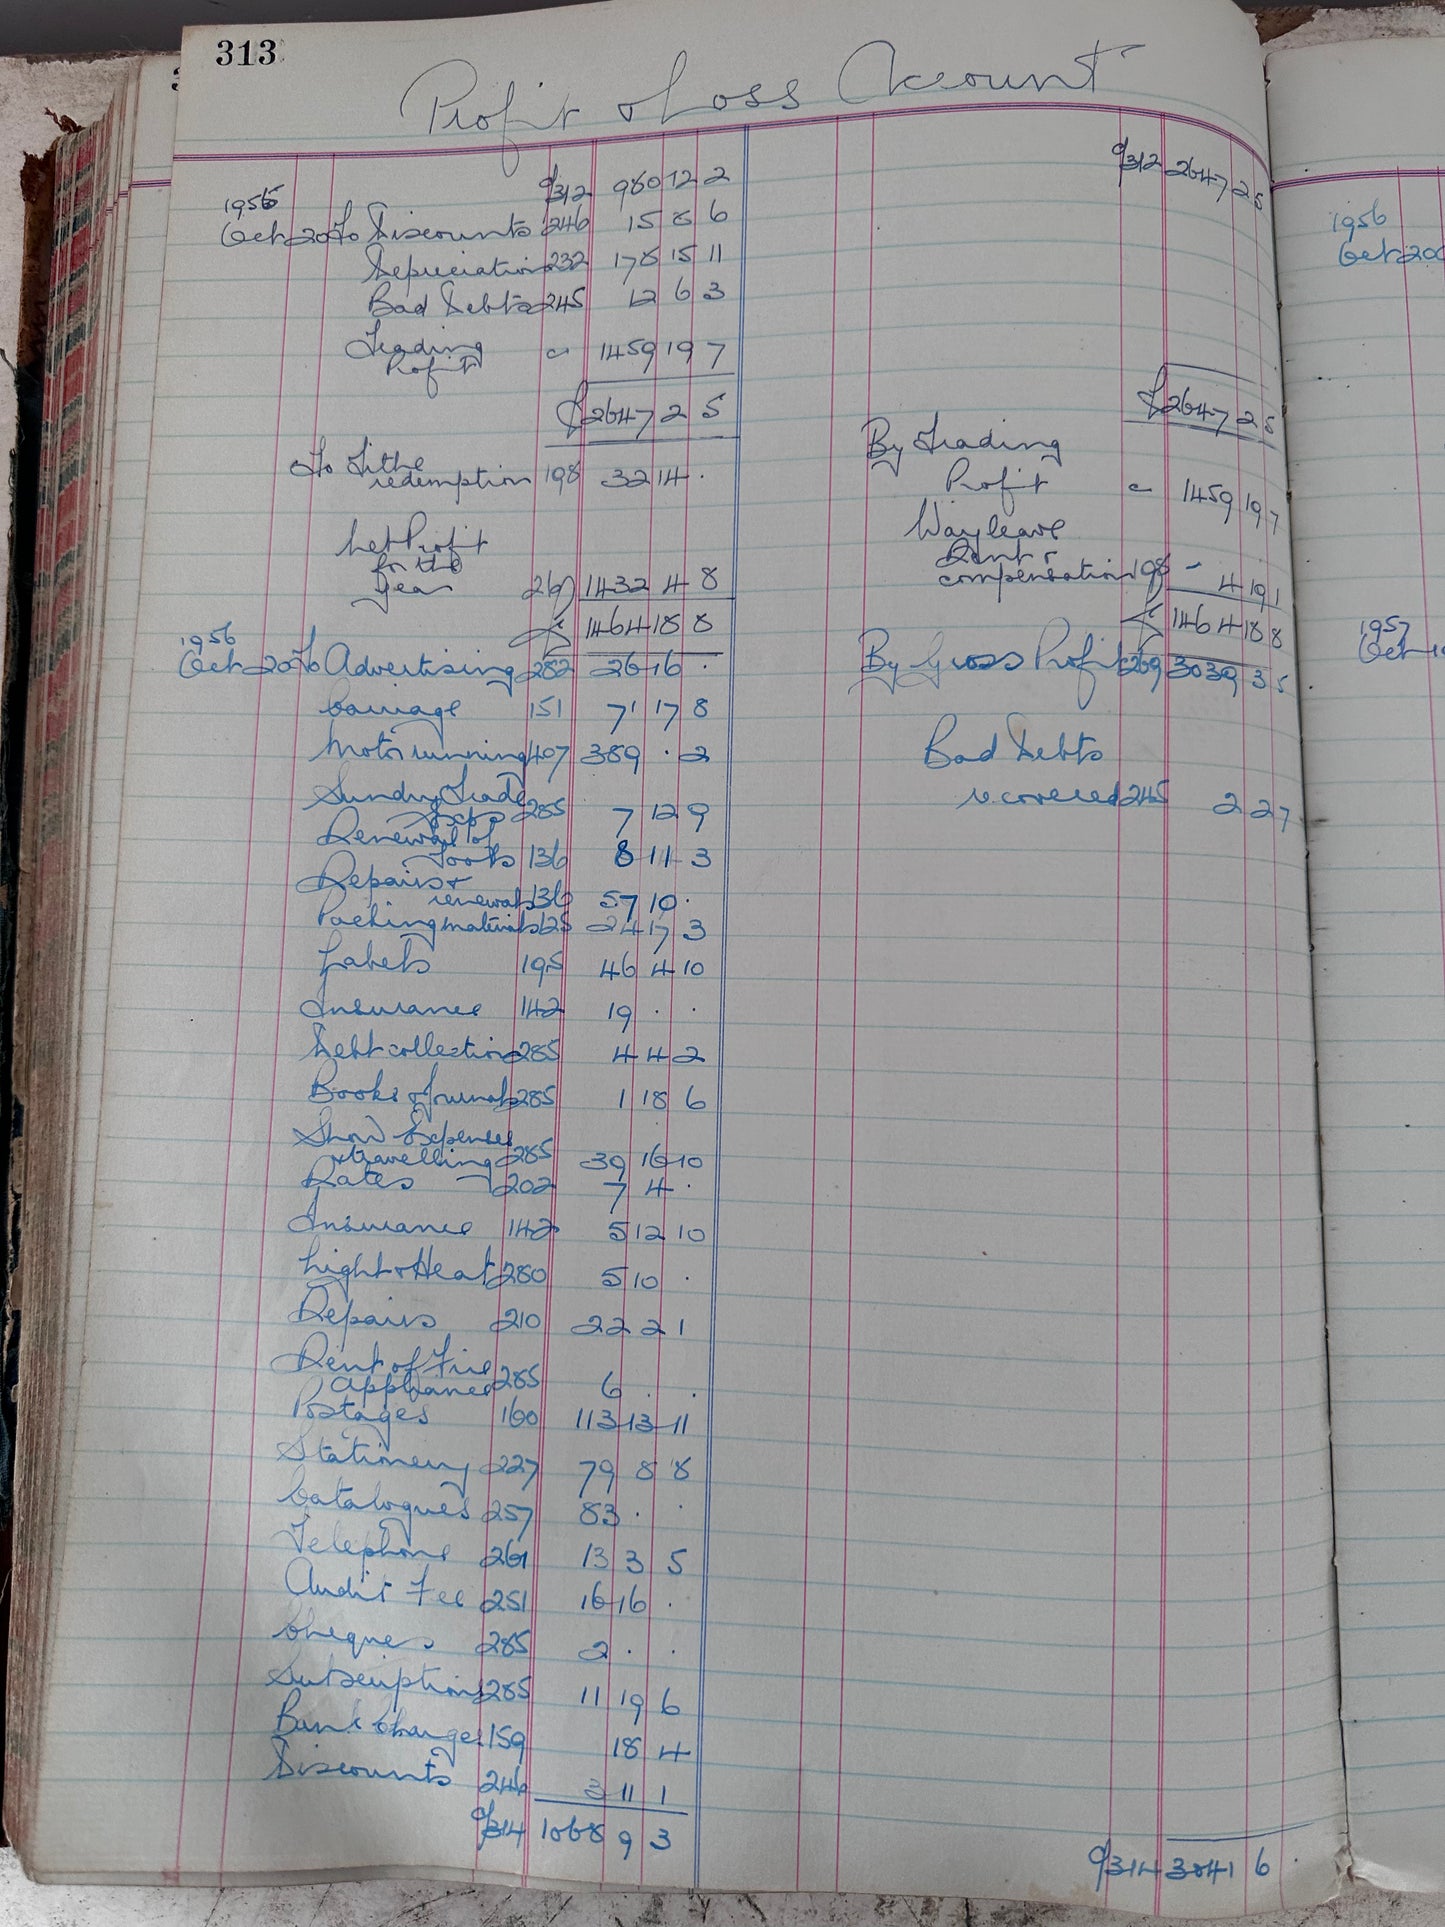 313
Profit & Loss Account
c/312 980 12 2
1955
Oct 20 To Discounts 246 15 8 6
Depreciation 232 178 15 11
Bad Debts 245 12 6 3
Trading
Profit c/ 1459 19 7
£ 2647 2 5
To Tithe
redemption 198 32 14 .
Net Profit
for the
year 269 1432 4 8
£ 1464 18 8
1956
Oct 20 To Advertising 282 26 16 .
Carriage 151 71 17 8
Motor running 407 389 . 2
Sundry Trade
Exps 285 7 12 9
Renewal of
Tools 136 8 11 3
Repairs &
renewals 136 57 10 .
Packing materials 125 24 17 3
Labels 195 46 4 10
Insurance 142 19 . .
Debt collection 285 4 4 2
Books & Journals 285 1 18 6
Show Expenses
& travelling 285 39 16 10
Rates 202 7 4 .
Insurance 142 5 12 10
Light & Heat 280 5 10 .
Repairs 210 22 2 1
Rent of Fire
appliances 285 6 . .
Postages 160 113 13 11
Stationery 227 79 8 8
Catalogues 257 83 . .
Telephone 261 13 3 5
Audit Fee 251 16 16 .
Cheques 285 2 . .
Subscriptions 285 11 19 6
Bank Charges 159 18 4
Discounts 246 3 11 1
c/314 1068 9 3
c/312 2647 2 5
£ 2647 2 5
By Trading
Profit c/ 1459 19 7
Wayleave
Rent &
compensation 198 - 4 19 1
£ 1464 18 8
By Gross Profit 269 3039 3 5
Bad Debts
recovered 245 2 2 7
c/314 3041 6 .
1956
Oct 20
1957
Oct 1